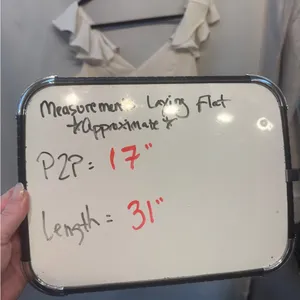 Measurements Laying Flat
*Approximate*
P2P = 17"
Length = 31"